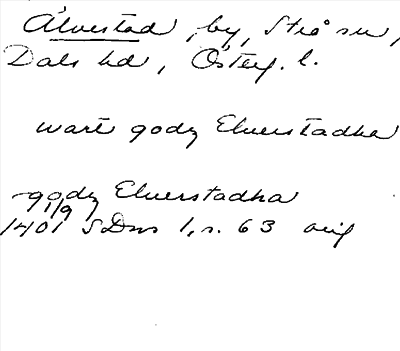 Älvestad, by, Strå sn,
Dals hd, Österg. l.
wart godz Elwerstadha
~godz Elwerstadha
1/9
1401 SDns 1, s. 63 orig